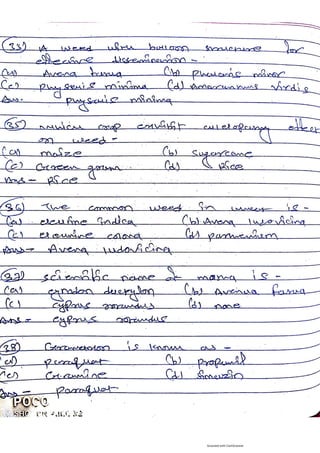 (33) A weed with balloon structure for
effective dissemination -
(a) Avena fatua (b) Phalaris minor
(c) Physalis minima (d) Amaranthus viridis
Ans. Physalis minima
(35) which crop exhibit effect
on weed -
(a) maize (b) Sugarcane
(c) Green gram (d) Rice
Ans - Rice
(36) The common weed in is -
(a) eleusine indica (b) Avena ludoviciana
(c) colona (d) parthenium
Ans - Avena ludoviciana
(37) Scientific name of is -
(a) cynodon dactylon (b) Avenua fatua
(c) cyprus rotundus (d) none
Ans - cyprus rotundus
(38) is known as -
(a) paraquat (b) propanil
(c) (d) Simazin
Ans - paraquat
POCO
Scanned with CamScanner